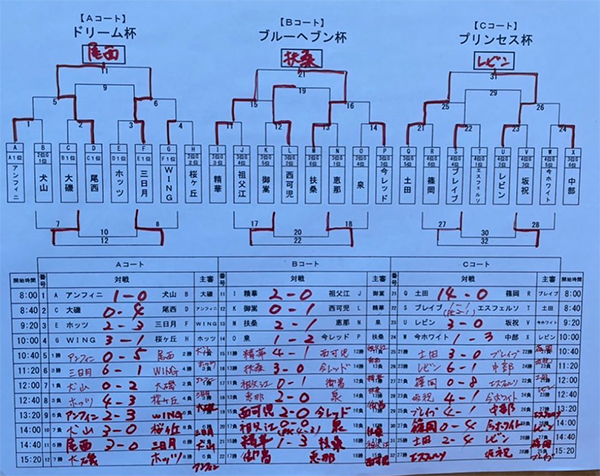 【Aコート】
ドリーム杯
尾西
【Bコート】
ブルーヘブン杯
扶桑
【Cコート】
プリンセス杯
レビン
11 9 5 6 1 2 3 4
21 19 15 16 11 12 13 14
31 29 25 26 21 22 23 24
A B C D E F G H
I J K L M N O P
Q R S T U V W X
アンフィニ 犬山 大磯 尾西 ホッツ 三日月 WING 桜ヶ丘
精華 祖父江 御嵩 西可児 扶桑 恵那 泉 今レッド
土田 篠岡 ブレイブ エスフェルソ レビン 坂祝 今ホワイト 中部
7 8 10 12
17 18 20 22
27 28 30 32
Aコート Bコート Cコート
開始時間 対戦 主審 対戦 主審 対戦 主審 開始時間
8:00 1 A アンフィニ 1-0 犬山 B 大磯 11 I 精華 2-0 祖父江 J 御嵩 21 Q 土田 14-0 篠岡 R ブレイブ 8:00
8:40 2 C 大磯 0-4 尾西 D アンフィニ 12 K 御嵩 0-1 西可児 L 精華 22 S ブレイブ エスフェルソ T 土田 8:40
9:20 3 E ホッツ 2-3 三日月 F WING 13 M 扶桑 2-1 恵那 N 泉 23 U レビン 3-0 坂祝 V 今ホワイト 9:20
10:00 4 G WING 3-1 桜ヶ丘 H ホッツ 14 O 泉 1-2 今レッド P 扶桑 24 W 今ホワイト 1-3 中部 X レビン 10:00
10:40 5 アンフィニ 0-5 尾西 15 精華 4-1 西可児 25 土田 3-0 ブレイブ 10:40
11:20 6 三日月 6-1 WING 16 扶桑 3-0 今レッド 26 レビン 6-1 中部 11:20
12:00 7 犬山 0-2 大磯 17 祖父江 0-1 御嵩 27 篠岡 0-8 エスフェルソ 12:00
12:40 8 ホッツ 4-3 桜ヶ丘 18 恵那 2-0 泉 28 坂祝 4-1 今ホワイト 12:40
13:20 9 アンフィニ 2-3 WING 19 西可児 2-0 今レッド 29 ブレイブ 4-1 中部 13:20
14:00 10 犬山 3-0 桜ヶ丘 20 祖父江 泉 30 篠岡 0-4 今ホワイト 14:00
14:40 11 尾西 3-0 三日月 21 精華 1-3 扶桑 31 土田 2-4 レビン 14:40
15:20 12 大磯 ホッツ 22 御嵩 恵那 32 エスフェルソ 坂祝 15:20